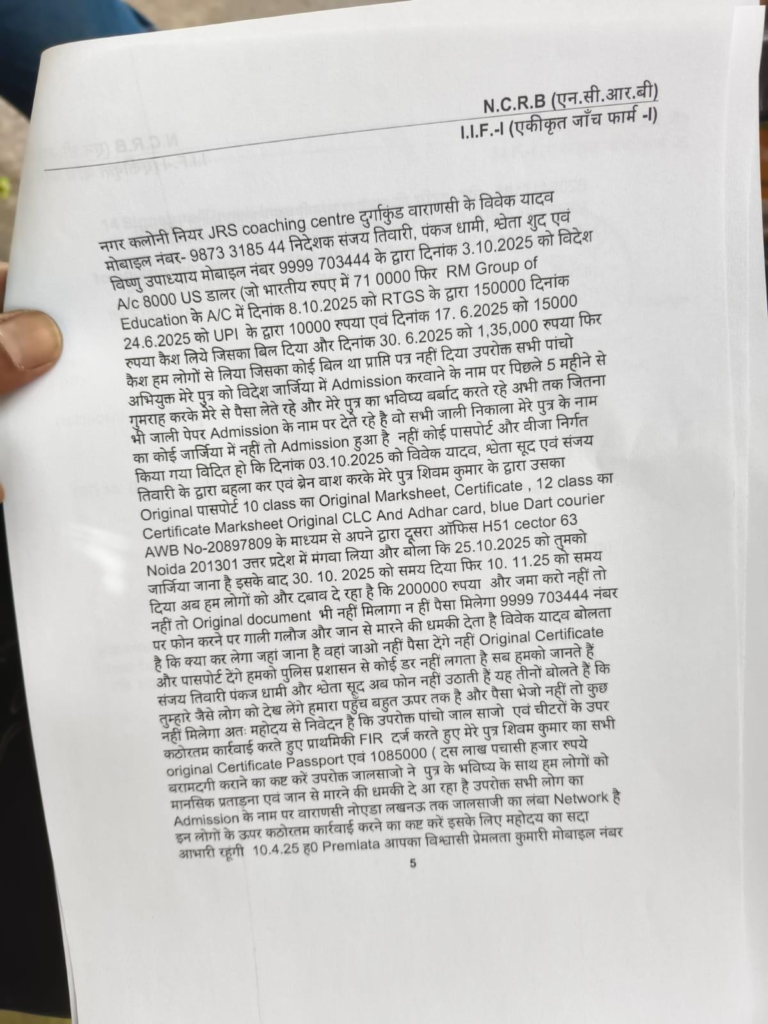 N.C.R.B (एन.सी.आर.बी)
I.I.F.-I (एकीकृत जाँच फार्म -I)
नगर कलोनी नियर JRS coaching centre दुर्गाकुंड वाराणसी के विवेक यादव
मोबाइल नंबर- 9873 3185 44 निदेशक संजय तिवारी, पंकज धामी, श्वेता शुद एवं
विष्णु उपाध्याय मोबाइल नंबर 9999 703444 के द्वारा दिनांक 3.10.2025 को विदेश
A/c 8000 US डालर (जो भारतीय रुपए में 71 0000 फिर RM Group of
Education के A/C में दिनांक 8.10.2025 को RTGS के द्वारा 150000 दिनांक
24.6.2025 को UPI के द्वारा 10000 रुपया एवं दिनांक 17. 6.2025 को 15000
रुपया कैश लिये जिसका बिल दिया और दिनांक 30. 6.2025 को 1,35,000 रुपया फिर
कैश हम लोगों से लिया जिसका कोई बिल था प्राप्ति पत्र नहीं दिया उपरोक्त सभी पांचो
अभियुक्त मेरे पुत्र को विदेश जार्जिया में Admission करवाने के नाम पर पिछले 5 महीने से
गुमराह करके मेरे से पैसा लेते रहे और मेरे पुत्र का भविष्य बर्बाद करते रहे अभी तक जितना
भी जाली पेपर Admission के नाम पर देते रहे है वो सभी जाली निकाला मेरे पुत्र के नाम
का कोई जार्जिया में नहीं तो Admission हुआ है नहीं कोई पासपोर्ट और वीजा निर्गत
किया गया विदित हो कि दिनांक 03.10.2025 को विवेक यादव, श्वेता सूद एवं संजय
तिवारी के द्वारा बहला कर एवं ब्रेन वाश करके मेरे पुत्र शिवम कुमार के द्वारा उसका
Original पासपोर्ट 10 class का Original Marksheet, Certificate , 12 class का
Certificate Marksheet Original CLC And Adhar card, blue Dart courier
AWB No-20897809 के माध्यम से अपने द्वारा दूसरा ऑफिस H51 cector 63
Noida 201301 उत्तर प्रदेश में मंगवा लिया और बोला कि 25.10.2025 को तुमको
जार्जिया जाना है इसके बाद 30. 10. 2025 को समय दिया फिर 10. 11.25 को समय
दिया अब हम लोगों को और दबाव दे रहा है कि 200000 रुपया और जमा करो नहीं तो
नहीं तो Original document भी नहीं मिलागा न हीं पैसा मिलेगा 9999 703444 नंबर
पर फोन करने पर गाली गलौज और जान से मारने की धमकी देता है विवेक यादव बोलता
है कि क्या कर लेगा जहां जाना है वहां जाओ नहीं पैसा देंगे नहीं Original Certificate
और पासपोर्ट देंगे हमको पुलिस प्रशासन से कोई डर नहीं लगता है सब हमको जानते हैं
संजय तिवारी पंकज धामी और श्वेता सूद अब फोन नहीं उठाती हैं यह तीनों बोलते हैं कि
तुम्हारे जैसे लोग को देख लेंगे हमारा पहुँच बहुत ऊपर तक है और पैसा भेजो नहीं तो कुछ
नहीं मिलेगा अतः महोदय से निवेदन है कि उपरोक्त पांचो जाल साजो एवं चीटरों के उपर
कठोरतम कार्रवाई करते हुए प्राथमिकी FIR दर्ज करते हुए मेरे पुत्र शिवम कुमार का सभी
original Certificate Passport एवं 1085000 ( दस लाख पचासी हजार रुपये
बरामदगी कराने का कष्ट करें उपरोक्त जालसाजो ने पुत्र के भविष्य के साथ हम लोगों को
मानसिक प्रताड़ना एवं जान से मारने की धमकी दे आ रहा है उपरोक्त सभी लोग का
Admission के नाम पर वाराणसी नोएडा लखनऊ तक जालसाजी का लंबा Network है
इन लोगों के ऊपर कठोरतम कार्रवाई करने का कष्ट करें इसके लिए महोदय का सदा
आभारी रहूंगी 10.4.25 ह0 Premlata आपका विश्वासी प्रेमलता कुमारी मोबाइल नंबर
5